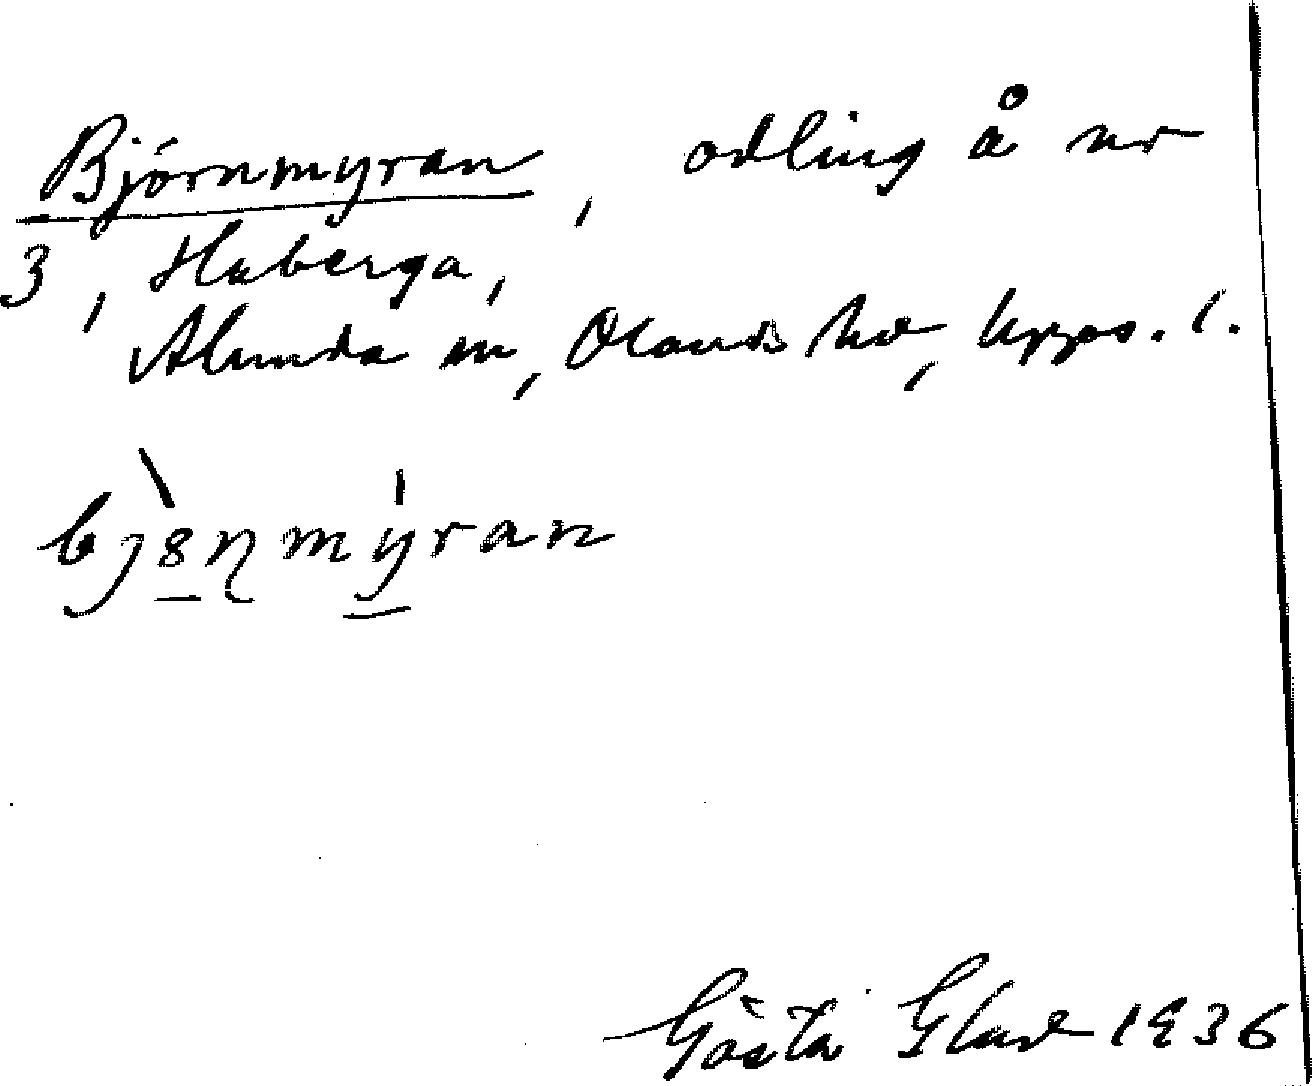 Björnmyran, odling å nr
3, Huberga,
Alunda sn, Olands hd, Upps. l.
bjɵɳmyran
Gösta Glad 1936